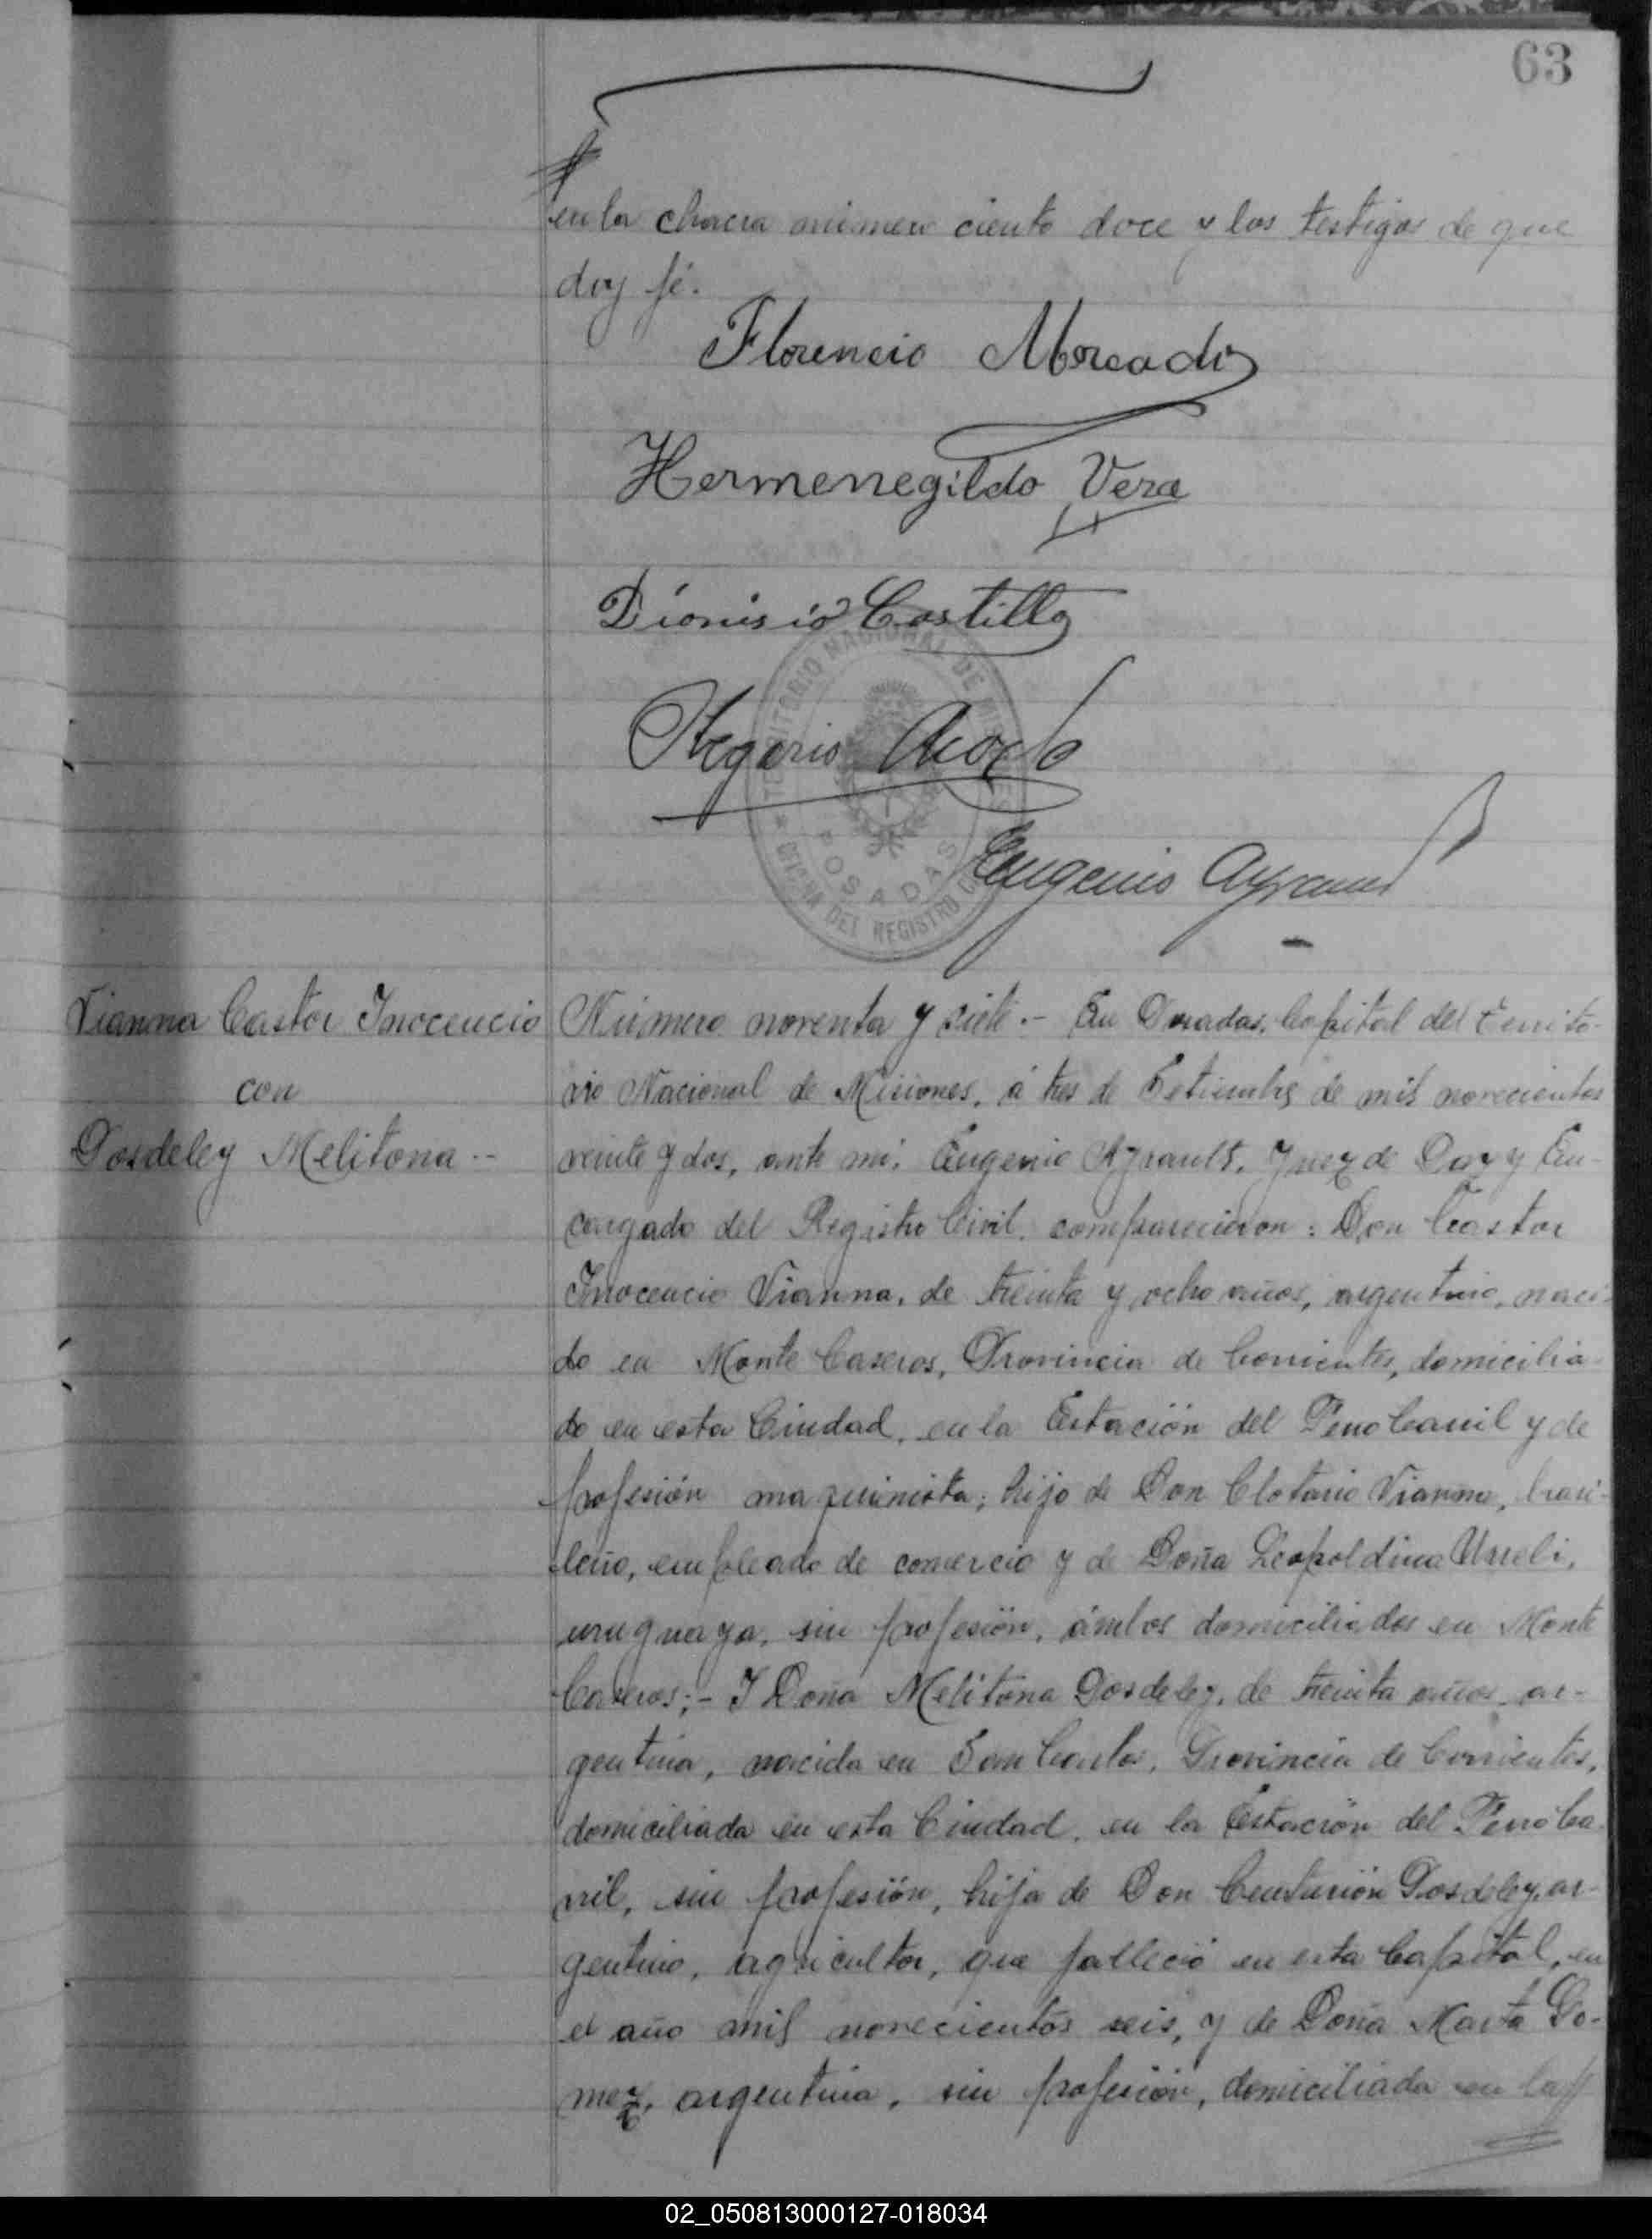 63
en la chacra número ciento doce y los testigos de que
doy fé.
Florencio Mercado
Hermenegildo Vera
Dionisio Castillo
TERRITORIO NACIONAL DE MISIONES
POSADAS
OFICINA DEL REGISTRO
Eugenio Ayrault
Vianna Castor Inocencio
con
Posdeley Melitona --
Número noventa y siete.- En Posadas, Capital del Territo-
rio Nacional de Misiones, á tres de Setiembre de mil novecientos
veinte y dos, ante mí, Eugenio Ayrault, Juez de Paz y En-
cargado del Registro Civil, comparecieron: Don Castor
Inocencio Vianna, de treinta y ocho años, argentino, naci-
do en Monte Caseros, Provincia de Corrientes, domicilia-
do en esta Ciudad, en la Estación del Ferro Carril y de
profesión maquinista; hijo de Don Clotario Vianna, brasi-
leño, empleado de comercio y de Doña Leopoldina
uruguaya, sin profesión, ámbos domiciliados en Monte
Caseros;- I Doña Melitona Posdeley, de treinta años, ar-
gentina, nacida en San Carlos, Provincia de Corrientes,
domiciliada en esta Ciudad, en la Estación del Ferro Ca-
rril, sin profesión, hija de Don Centurión Posdeley, ar-
gentino, agricultor, que falleció en esta Capital, en
el año mil novecientos seis, y de Doña Marta Go-
mez, argentina, sin profesión, domiciliada en la//
02_050813000127-018034